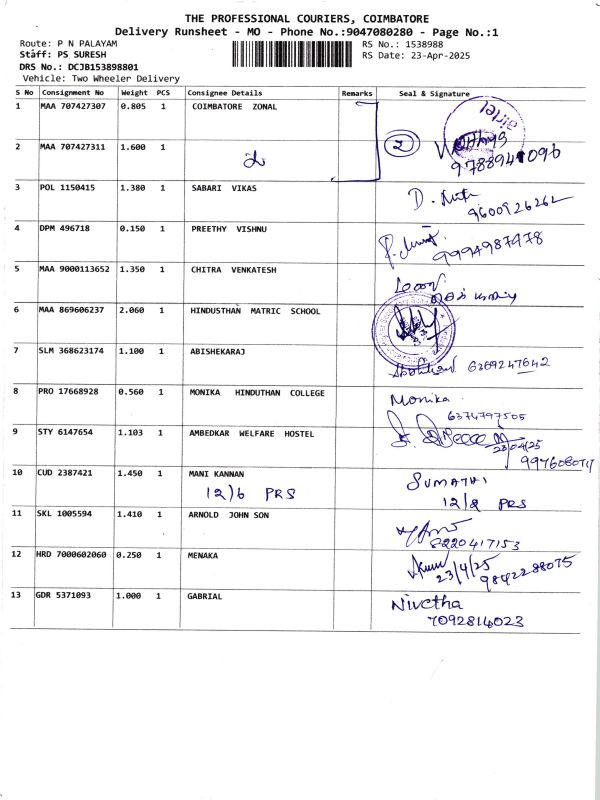 THE PROFESSIONAL COURIERS, COIMBATORE
Delivery Runsheet - MO - Phone No.:9047080280 - Page No.:1
Route: P N PALAYAM
RS No.: 1538988
Staff: PS SURESH
RS Date: 23-Apr-2025
DRS No.: DCJB153898801
Vehicle: Two Wheeler Delivery
S No Consignment No Weight PCS Consignee Details Remarks Seal & Signature
1 MAA 707427307 0.805 1 COIMBATORE ZONAL
airtel
2 MAA 707427311 1.600 1
2
3 POL 1150415 1.380 1 SABARI VIKAS
9600926262
4 DPM 496718 0.150 1 PREETHY VISHNU
9994987978
5 MAA 9000113652 1.350 1 CHITRA VENKATESH
6 MAA 869606237 2.060 1 HINDUSTHAN MATRIC SCHOOL
7 SLM 368623174 1.100 1 ABISHEKARAJ
6369247642
8 PRO 17668928 0.560 1 MONIKA HINDUTHAN COLLEGE Monika
6374797505
9 STY 6147654 1.103 1 AMBEDKAR WELFARE HOSTEL
23/04/25
10 CUD 2387421 1.450 1 MANI KANNAN SUMATHI
12/6 PRS
12/2 PRS
11 SKL 1005594 1.410 1 ARNOLD JOHN SON
8220417153
12 HRD 7000602060 0.250 1 MENAKA
23/4/25 9842288075
13 GDR 5371093 1.000 1 GABRIAL Nivetha
7092814023